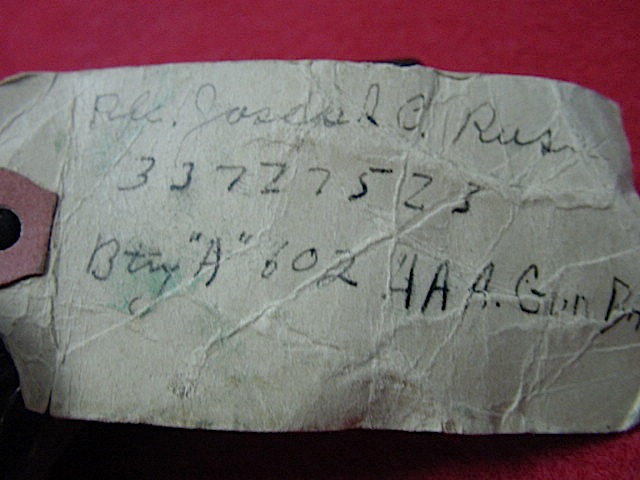 Pfc. Joseph C. Rus
33727523
Btry "A" 602 AAA. Gun Bn